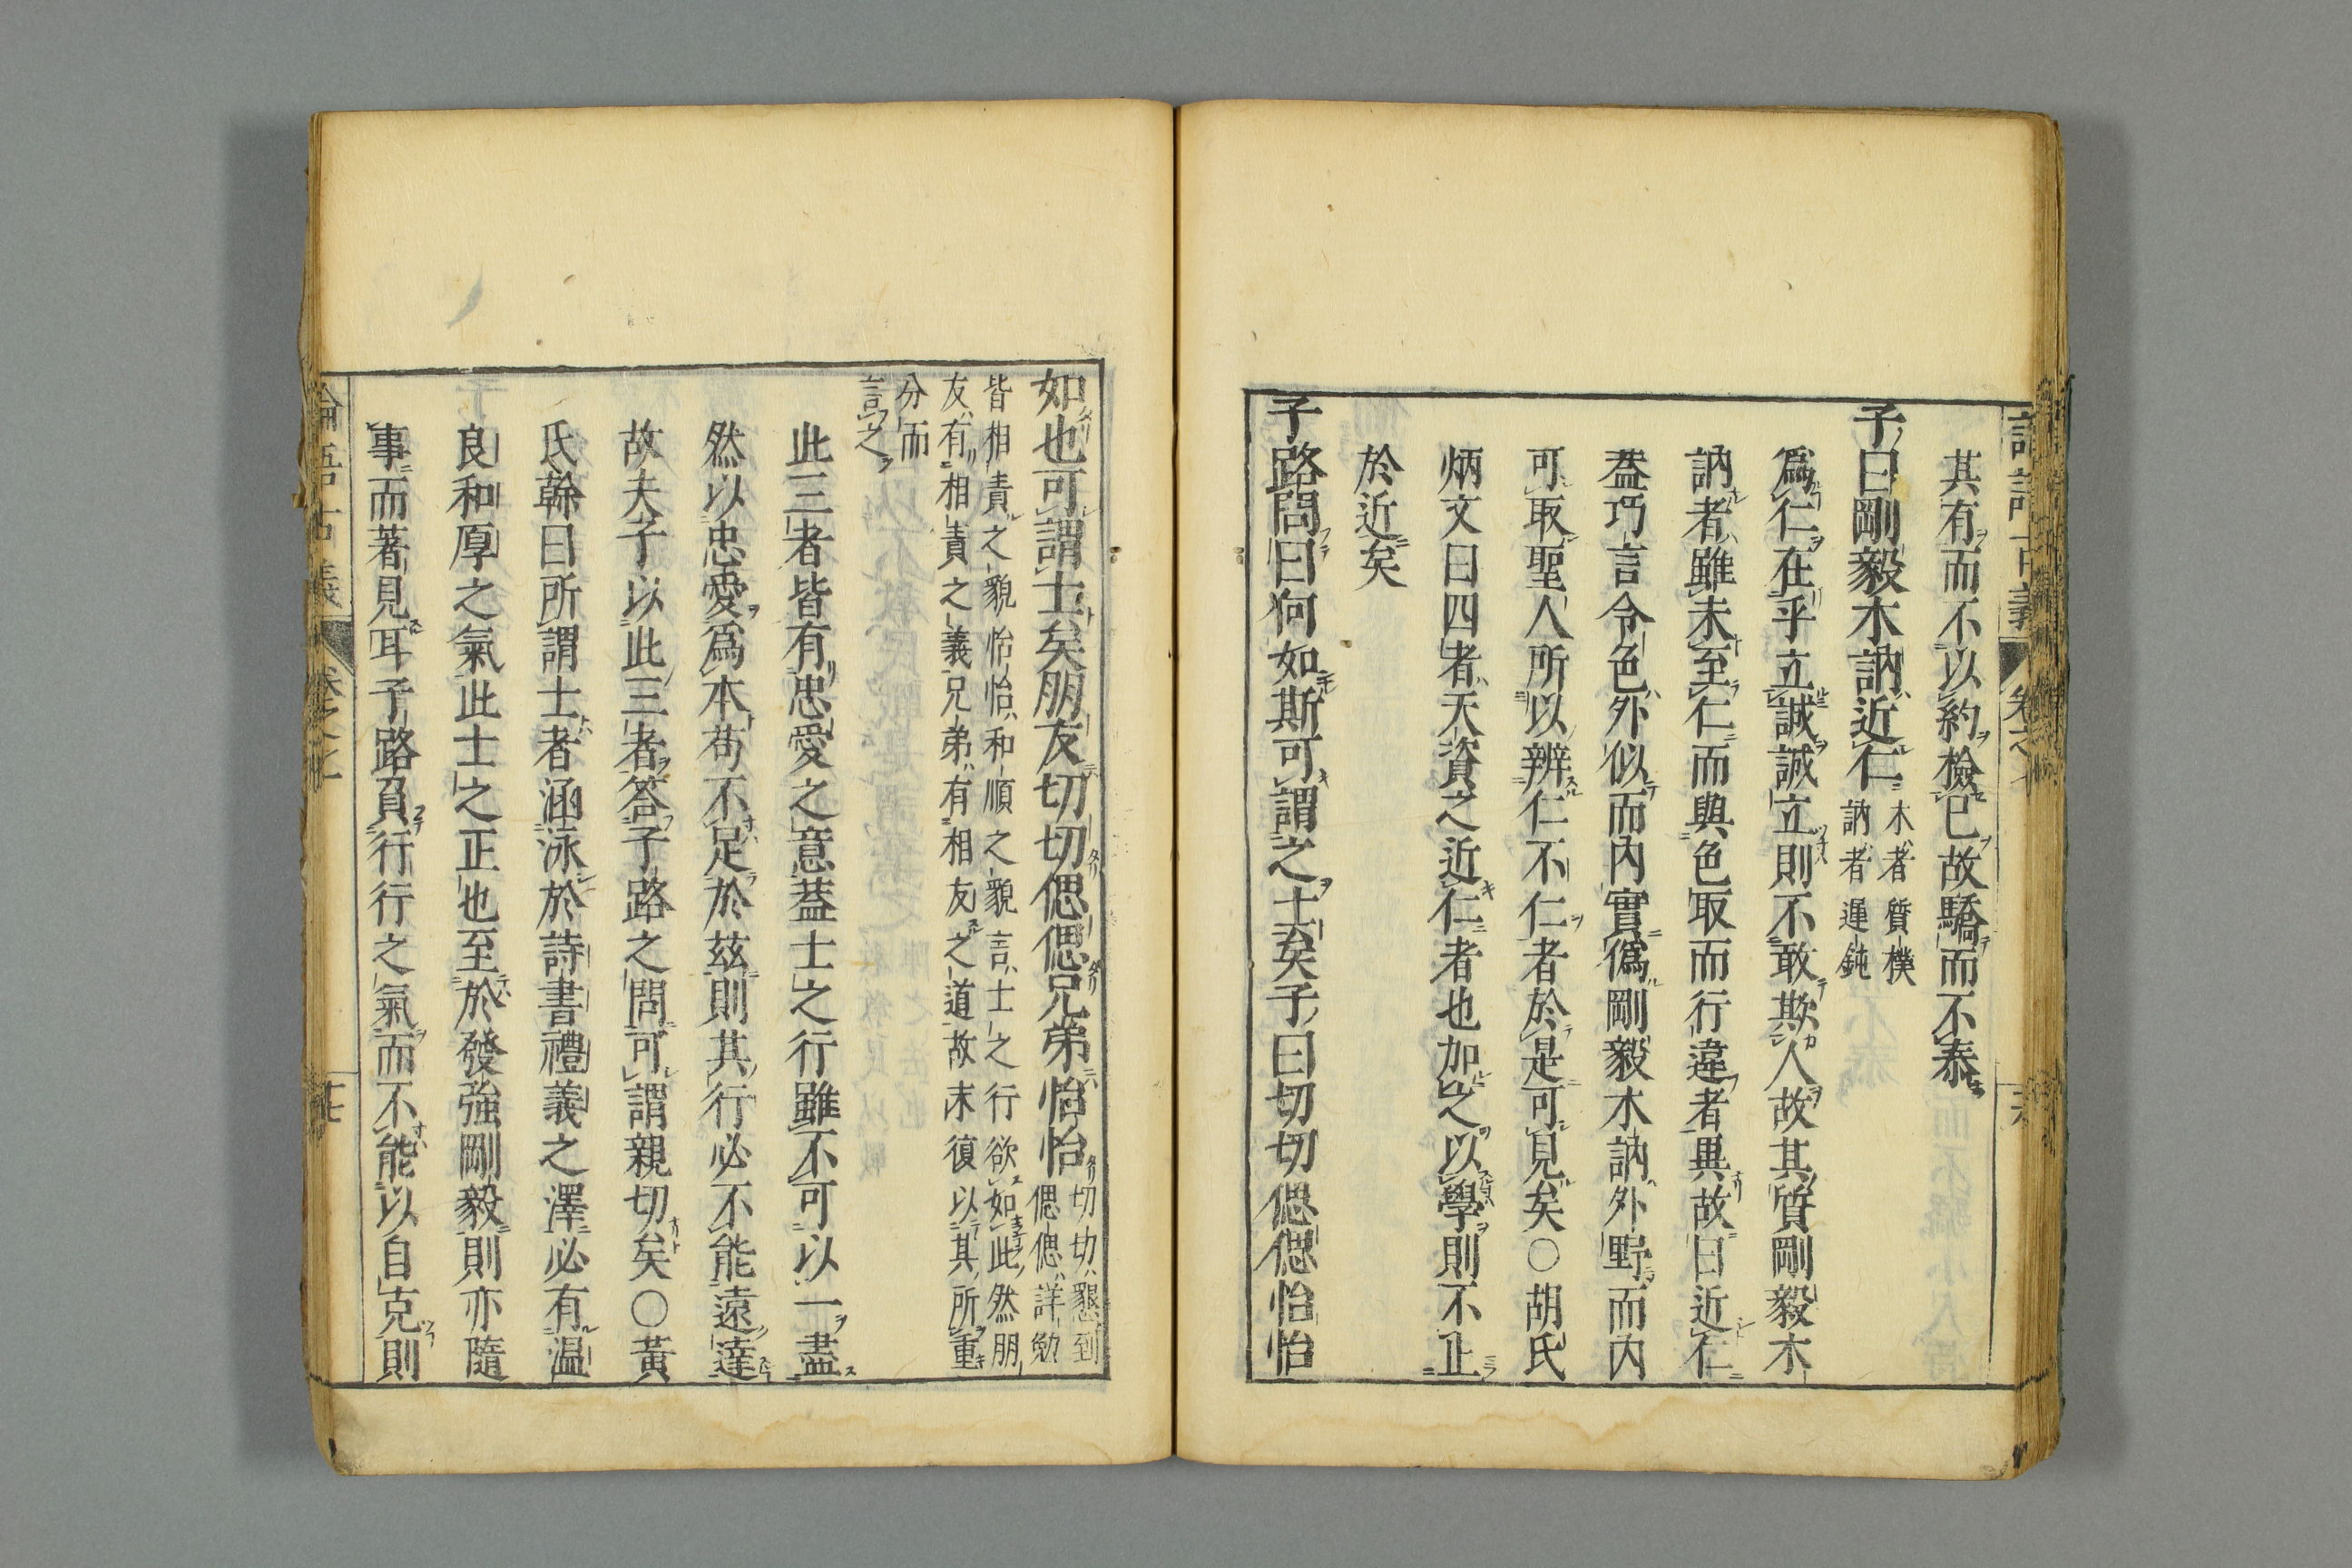 其有而不以約檢已故驕而不泰
子曰剛毅木訥近仁 木者質樸
訥者遲鈍
爲仁在乎立誠誠立則不敢欺人故其質剛毅木
訥者雖未至仁而與色取而行違者異故曰近仁
葢巧言令色外似而內實僞剛毅木訥外野而内
可取聖人所以辨仁不仁者於是可見矣〇胡氏
炳文曰四者天資之近仁者也加之以學則不止
於近矣
子路問曰何如斯可謂之士矣子曰切切偲偲怡怡
如也可謂士矣朋友切切偲偲兄弟怡怡 切切懇到
偲偲詳勉
皆相責之貌怡怡和順之貌言士之行欲如此然朋
友有相責之義兄弟有相友之道故末復以其所重
分而
言之
此三者皆有忠愛之意葢士之行雖不可以一盡
然以忠愛爲本苟不足於茲則其行必不能遠達
故夫子以此三者答子路之問可謂親切矣〇黃
氏榦曰所謂士者涵泳於詩書禮義之澤必有温
良和厚之氣此士之正也至於發強剛毅則亦隨
事而著見耳子路負行行之氣而不能以自克則